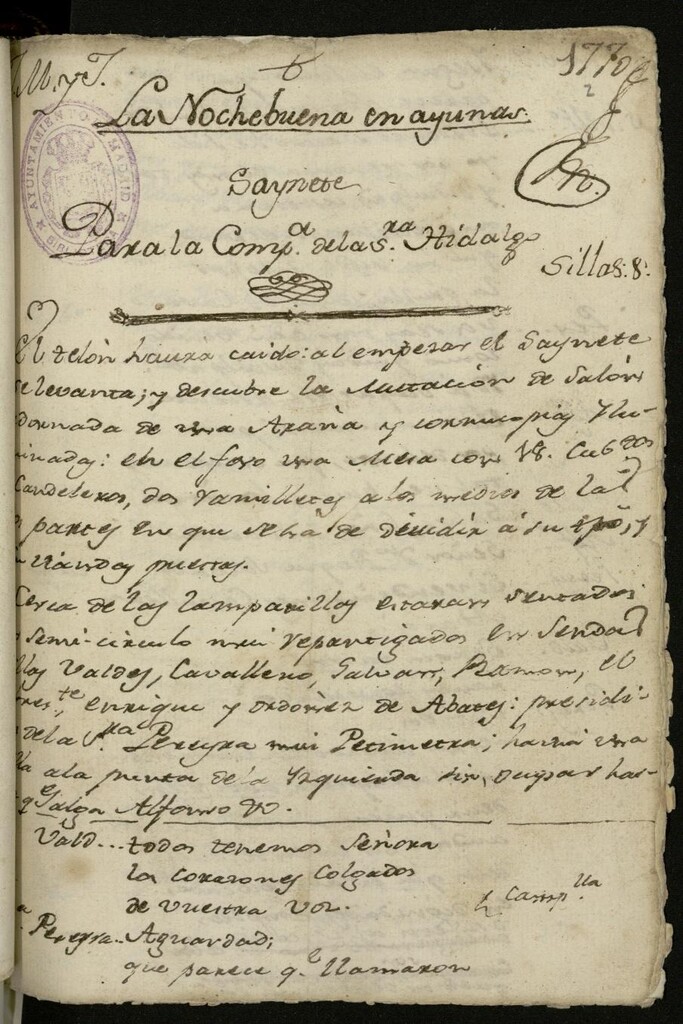 M, y J. 1770
2
La Nochebuena en ayunas.
Saynete
Para la Comp.ª de la S.ra Hidalgo
Sillas: 8:
AYUNTAMIENTO MADRID
El telón haura caido: al empezar el Saynete
se levanta; y descubre la Mutación de Salón
dornada de una Araña y cornucopias Ylu-
minadas: en el foro una Mesa con 18. Cub.dos
Candeleros, dos Ramilletes a los medios de las
partes en que se há de dividir á su
viandas puestas.
Cerca de las lamparillas estaran sentados
semi-circulo mui repantigados en Sendas
Valdes, Cavallero, Galvan, Ramon, el
te Enrique y Ordoñez de Abates: presidi-
de la S.ra Pereyra mui Petimetra; havrá una
a la punta de la Yzquierda sin ocupar has-
q.e Salga Alfonso
Vald... todos tenemos Señora
los corazones colgados
de vuestra voz.
Campilla
Pereyra.. Aguardad;
que parece q.e llamaron